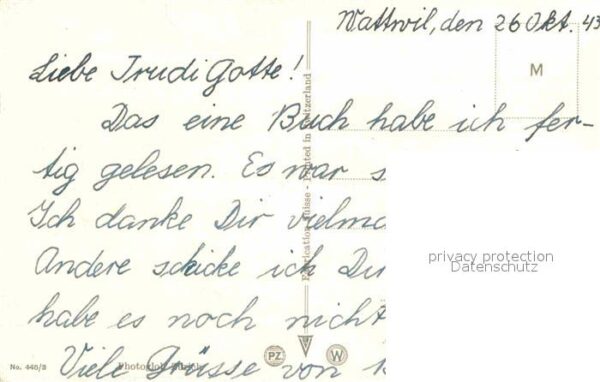 Wattwil, den 26 Okt. 43
M
Liebe Trudi Gotte!
Das eine Buch habe ich fer-
tig gelesen. Es war s
Ich danke Dir vielma
Andere schicke ich Dir
habe es noch nicht
Viele Grüsse von
Fabrication Suisse - Printed in Switzerland
privacy protection
Datenschutz
No. 440/B
Photoglob
PZ
V
W